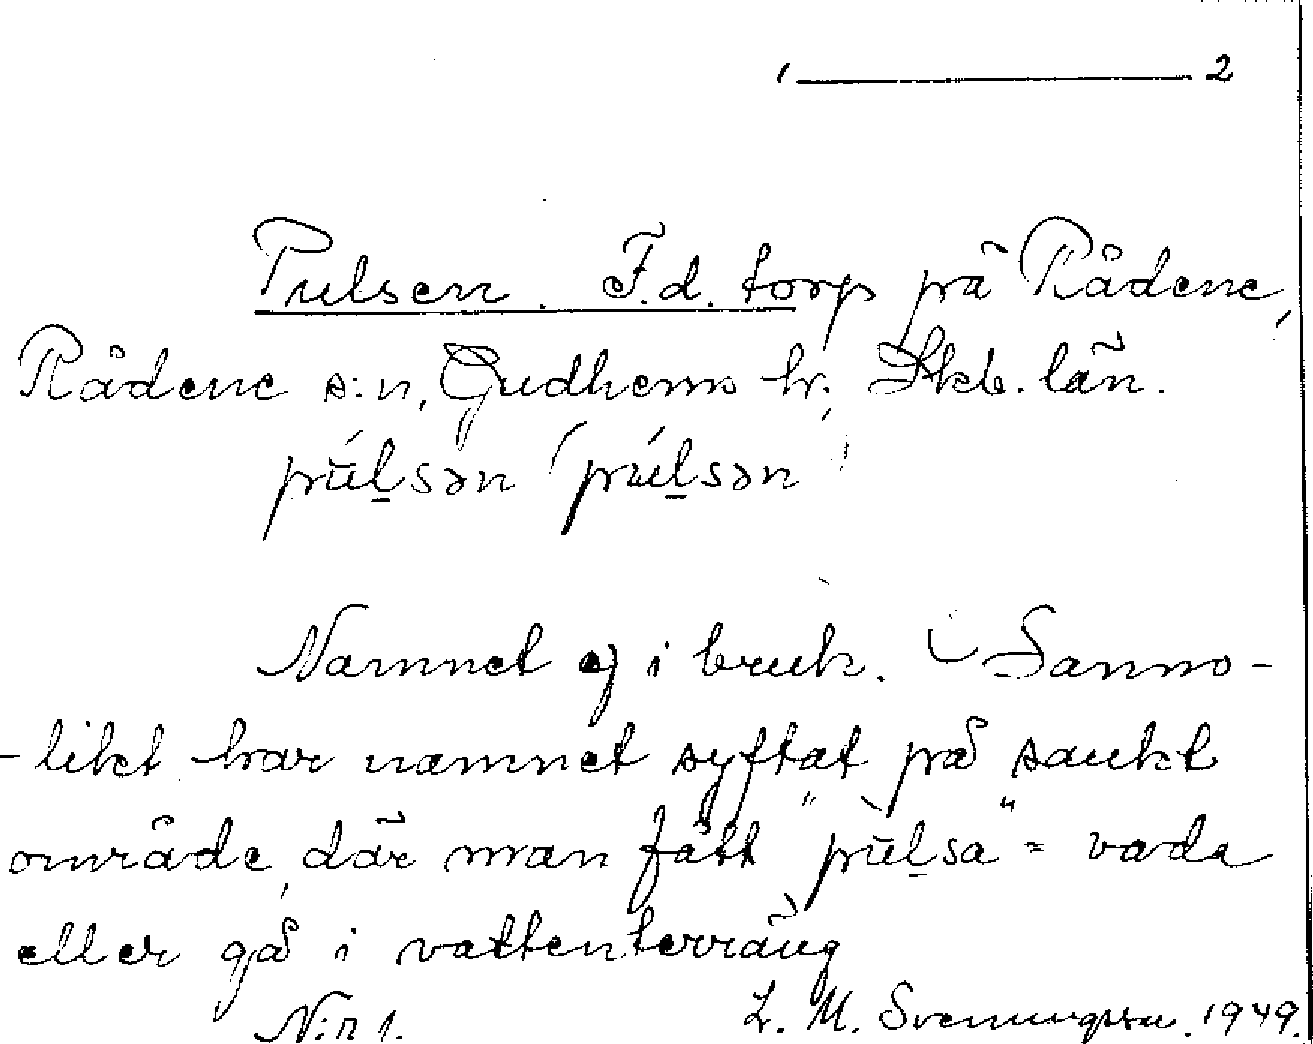 1 ——— 2
Pulsen. F.d. torp på Rådene,
Rådene s:n, Gudhems hr, Skb. län.
pu̇l̠sən (pu̇l̠sən)
Namnet ej i bruk. Sanno-
-likt har namnet syftat på sankt
område, där man fått "pu̇l̠sa" = vada
eller gå i vattenterräng
N:r 1. L. M. Svenungsson. 1949.